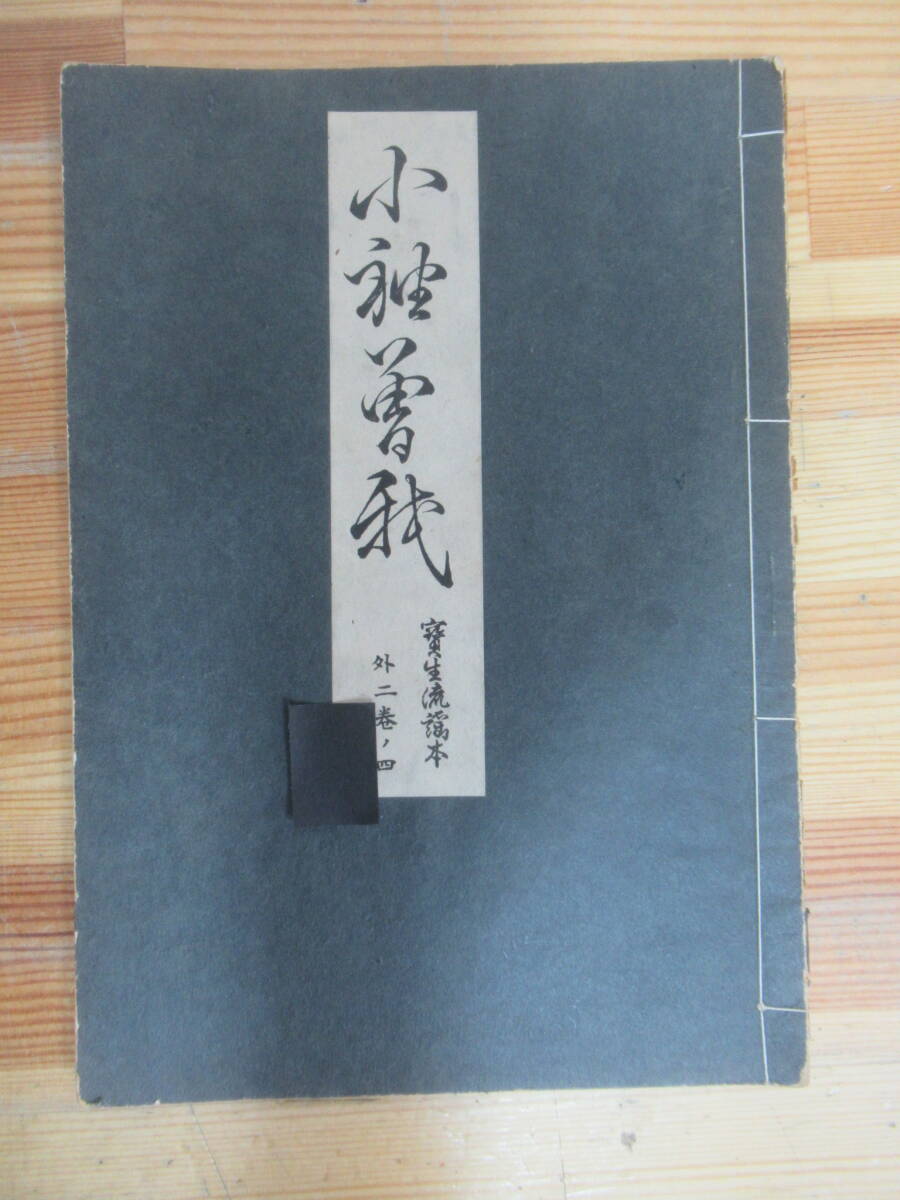 小袖曽我
寳生流謡本
外二巻ノ四